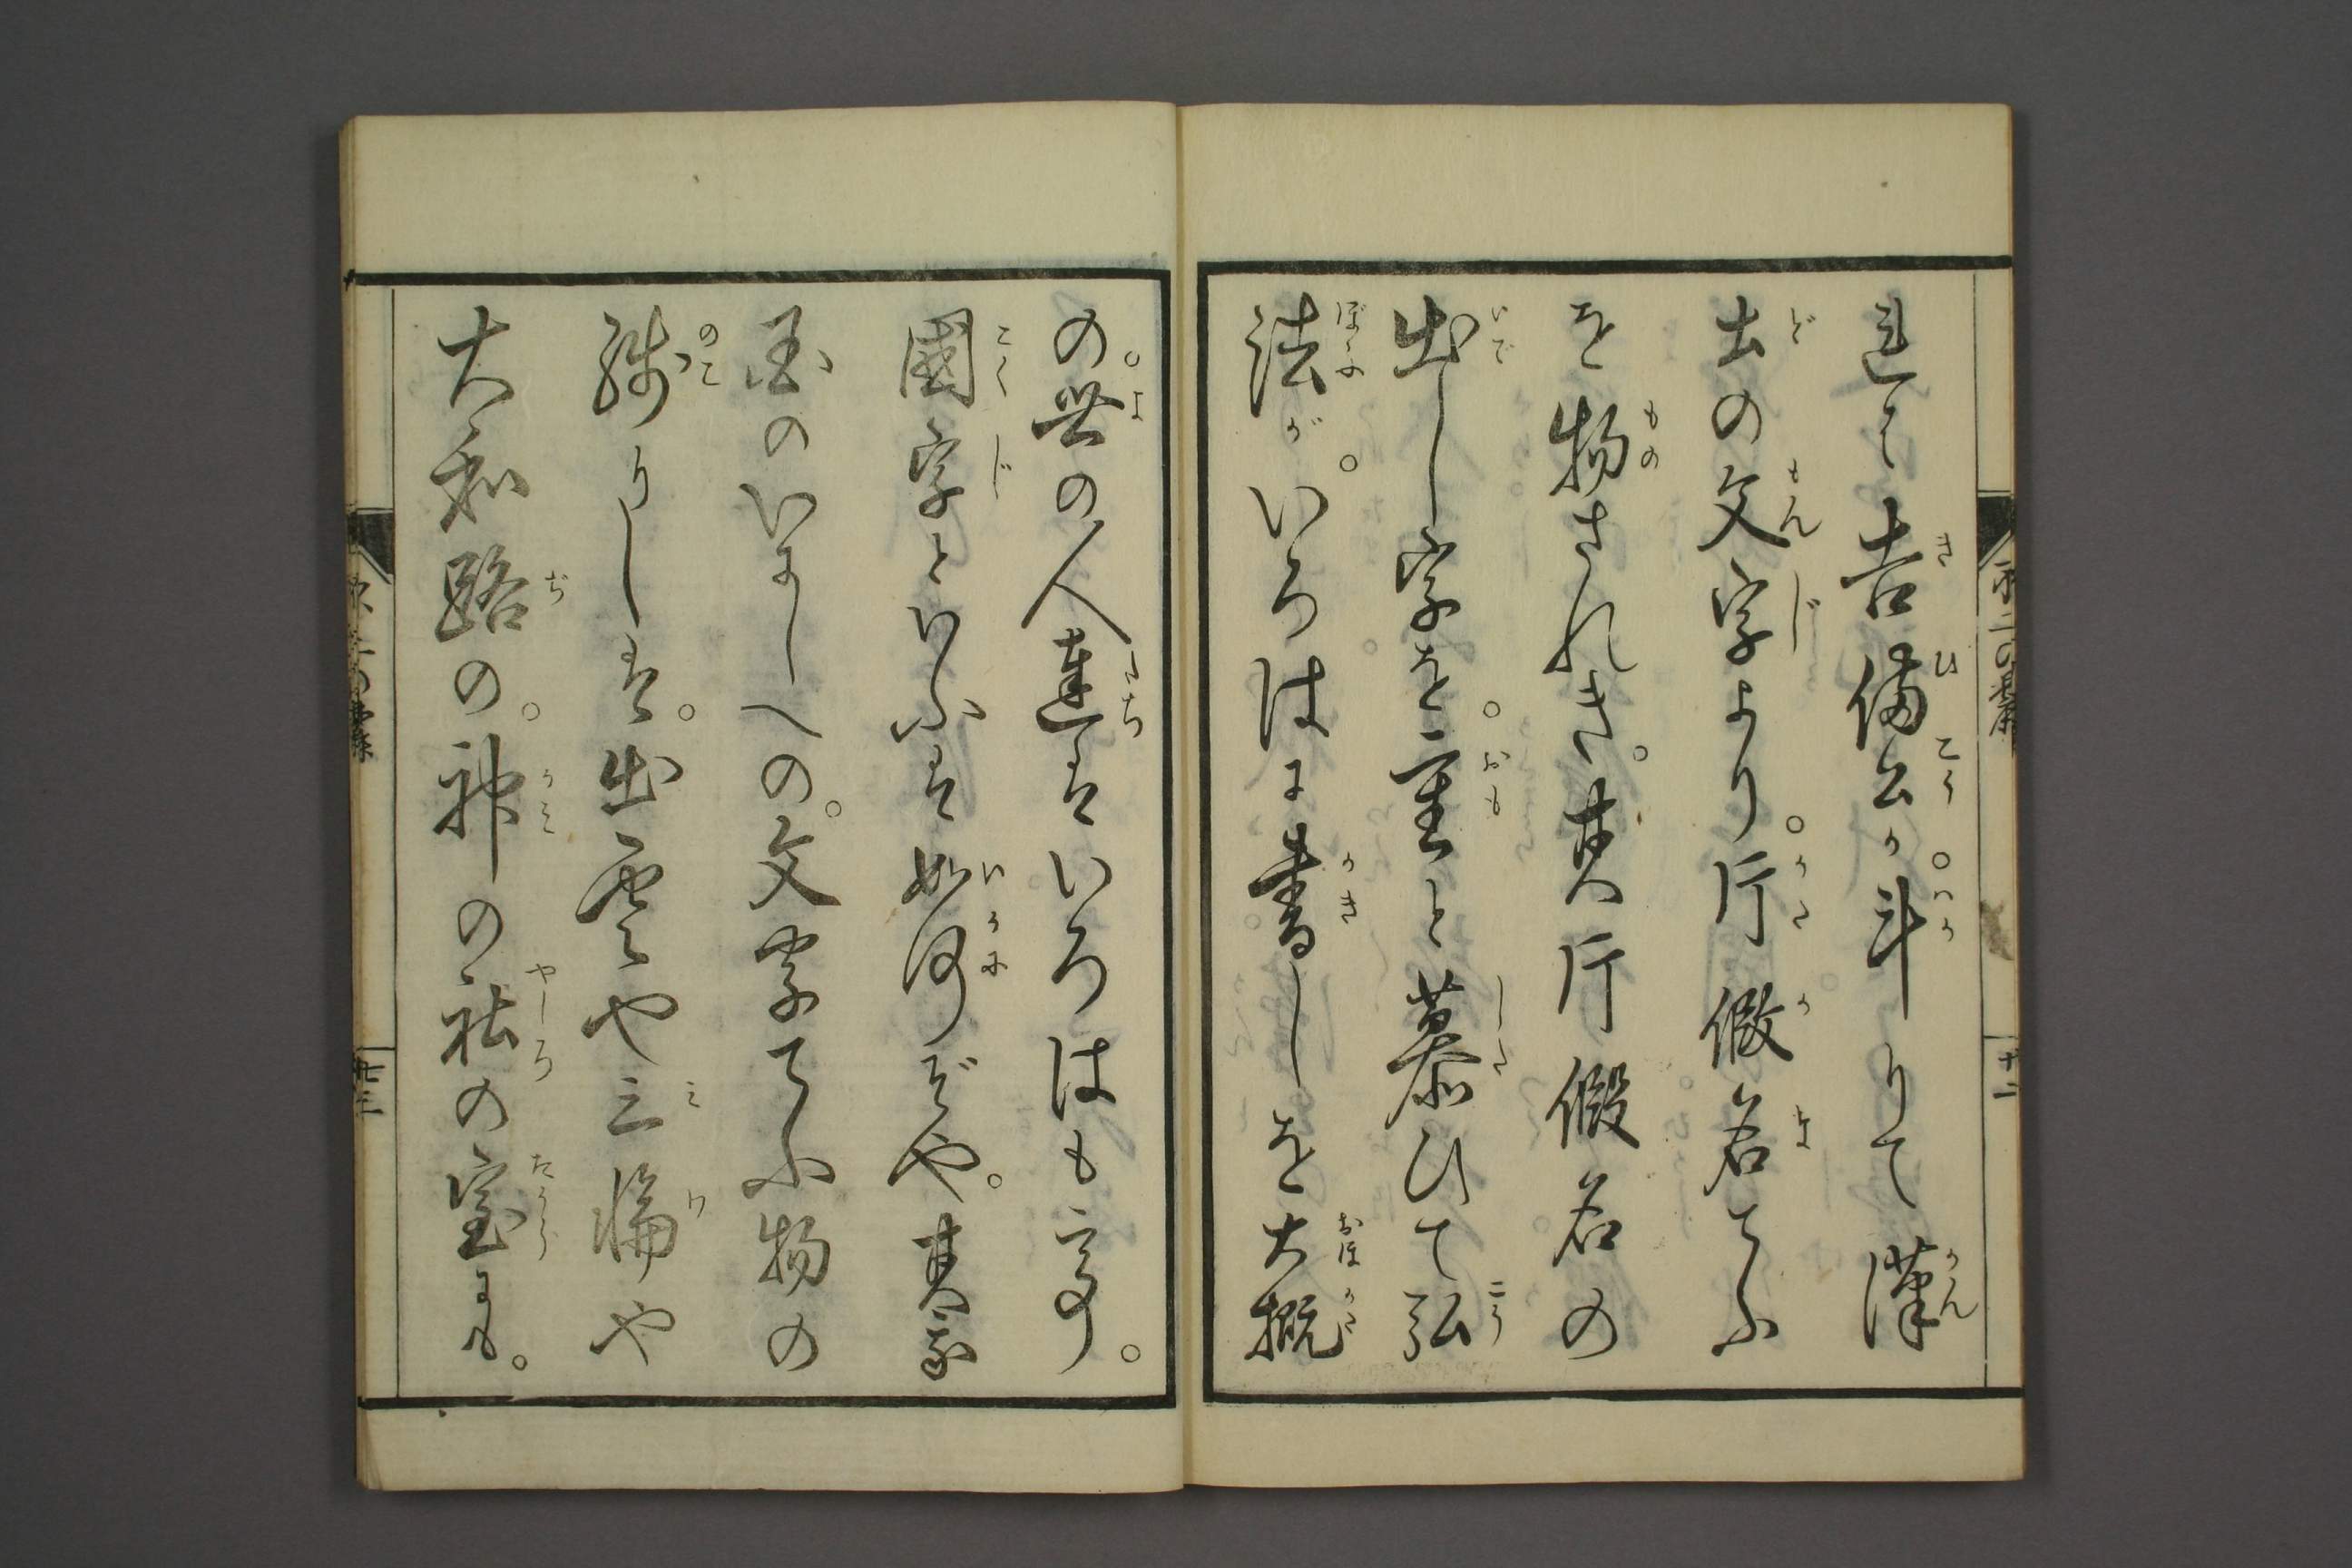 れて吉備公が。斗りて漢
土の文字より。片假名てふ
を物されき。其片假名の
出し字を。重と慕ひて弘
法が。いろはに書しを大概
の。世の人達はいろはも云り。
國字といふは如何ぞや。其
国のいにしへの。文字てふ物の
殘りしは。出雲や三輪や
大和路の。神の社の室にも。